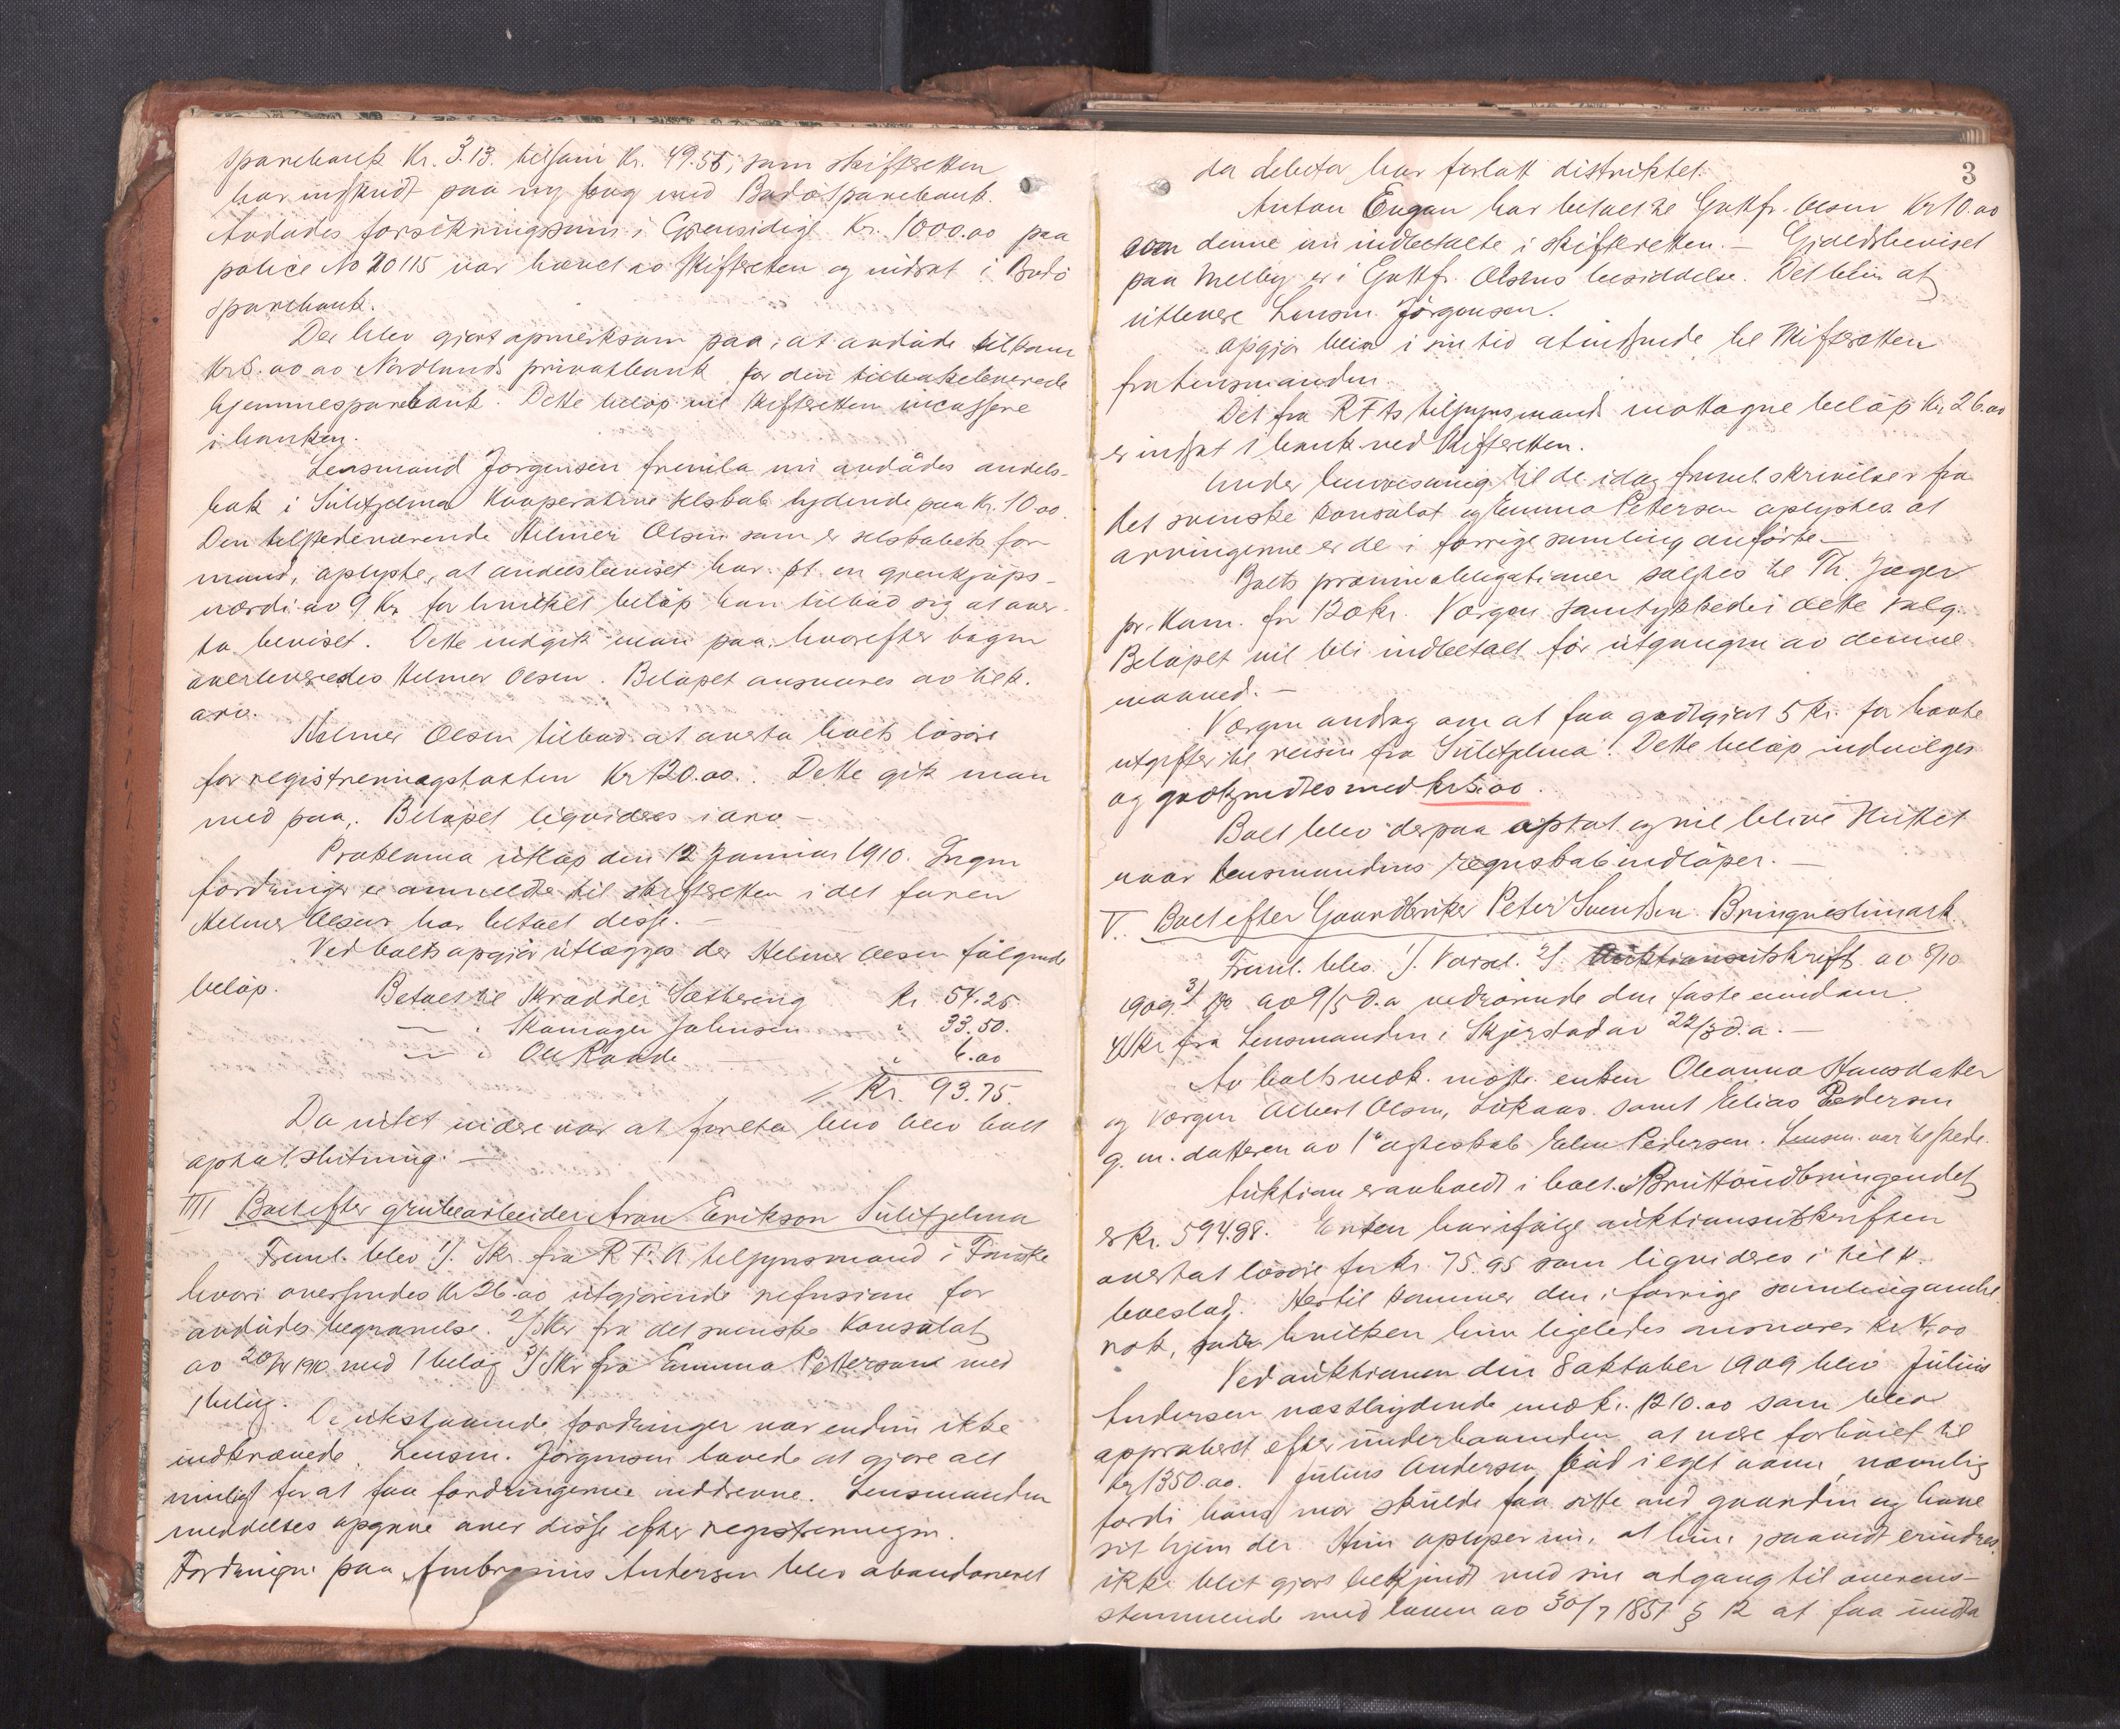 sparebank Kr. 3.13. tilsam Kr. 49.55, som skifteretten
har indsendt paa ny bog med Bodö sparebank.
Avdødes forsikringssum i Gjensidige Kr. 1000.00 paa
police No 20115 var hævet av skifteretten og indsat i Bodö
sparebank.
Der blev gjort opmerksom paa, at avdöde tilkom
Kr 5.00 av Nordlands privatbank for den tilbakeleverede
hjemmesparebank. Dette belöp vil skifteretten incassere
i banken.
Lensmand Jörgensen fremla nu avdødes andels-
bok i Sulitjelma Kooperative selskab lydende paa Kr. 10.00.
Den tilstedeværende Hilmer Olsen som er selskabets for-
mand, oplyste, at andelsbeviset har pt. en gjenkjöps-
værdi av 9 Kr for hvilket belöp han tilböd sig at over-
ta beviset. Dette indgik man paa hvorefter bogen
overleveredes Helmer Olsen. Belöpet ansvares av tilk.
arv.
Helmer Olsen tilböd at overta boets lösöre
for registreringstaksten Kr 120.00. Dette gik man
med paa. Belöpet liqvideres i arv –
Proklama utlöp den 12 Januar 1910. Ingen
fordringer er anmeldte til skifteretten i det faren
Helmer Olsen har betalt disse. –
Ved boets opgjör utlægges der Helmer Olsen fölgende
belöp.
Betalt til Skrædder Sæthering Kr. 54.25
— " Skomager Johnsen " 33.50.
— " Ole Raade — " 6.00
Kr. 93.75.
Da intet videre var at foreta blev boet
optat slutning. —
IIII Boet efter grubearbeider Aron Erikson Sulitjelma
Freml. blev 1). Skr. fra R.F.A tilsynsmand i Fauske
hvori oversendes Kr 26.00 utgjörende refusion for
avdødes begravelse. 2) Skr fra det svenske Konsulat
av 20/4 1910 med 1 belæg 3) Skr fra Emma Petterson med
1 belæg.
De utestaaende fordringer var endnu ikke
indkrævede. Lensm. Jörgensen lovede at gjöre alt
muligt for at faa fordringerne inddrevne. Lensmanden
meddeltes opgave over disse efter registreringen.
Fordringen paa Ambrosius Andersen blev abandoneret
3
da debitor har forlatt distriktet.
Anton Engan har betalt til Gottfr. Olsen Kr 10.00
som denne nu indbetalte i skifteretten. – Gjældsbeviset
paa Melby er i Gottfr. Olsens besiddelse. Det blir at
utlevere Lensm. Jörgensen.
Opgjör blir i sin tid at indsende til skifteretten
fra lensmanden.
Det fra R F As tilsynsmand mottagne belöp Kr. 26.00
er indsat i bank ved skifteretten.
Under henvisning til de idag freml. skrivelser fra
det svenske konsulat og Emma Peterson oplystes at
arvingerne er de i forrige samling anförte. –
Boets præmieobligationer solgtes til Th. Jæger
pr. Kom. for 120 kr. Værgen samtykkede i dette salg.
Belöpet vil bli indbetalt för utgangen av denne
maaned. –
Værgen androg om at faa godtgjort 5 Kr. for havte
utgifter til reisen fra Sulitjelma. Dette belöp indvilges
og godkjendtes med Kr 5.00.
Boet blev derpaa optat og vil blive sluttet
naar lensmandens regnskab indlöper. –
V. Boet efter Gaardbruker Peter Svendsen Bringneslimark
Freml. blev 1). Varsel. 2). Auktionsutskrift av 8/10
1909. 3) do av 9/5 d.a vedrörende den faste eiendom.
4) Skr fra Lensmanden i Skjerstad av 22/3 d.a. –
Av boets vedk. mötte enken Oleanna Hansdatter
og værgen Albert Olsen, Lukaas samt Elias Pedersen
g. m. datteren av 1ste ægteskab Elen Pedersen. Lensm. var tilstede.
Auktion er avholdt i boet. Bruttoudbringendet
er Kr. 594.98. Enken har ifölge auktionsutskriften
overtat lösöre for kr. 75.95 som liqvideres i tilk.
boeslod. Hertil kommer den i forrige samling omh.
rok, for hvilken hun ligeledes ansvarer kr. 4.00
Ved auktionen den 8 oktober 1909 blev Julius
Andersen næstbydende med kr. 1210.00 som blev
approberet efter underhaanden at være forhöiet til
kr 1350.00. Julius Andersen böd i eget navn, nemlig
fordi hans mor skulde faa sitte med gaarden og have
sit hjem der. Hun oplyser nu, at hun, saavidt erindres,
ikke blet gjort bekjendt med sin adgang til overens-
stemmende med loven av 30/7 1851 § 12 at faa undta